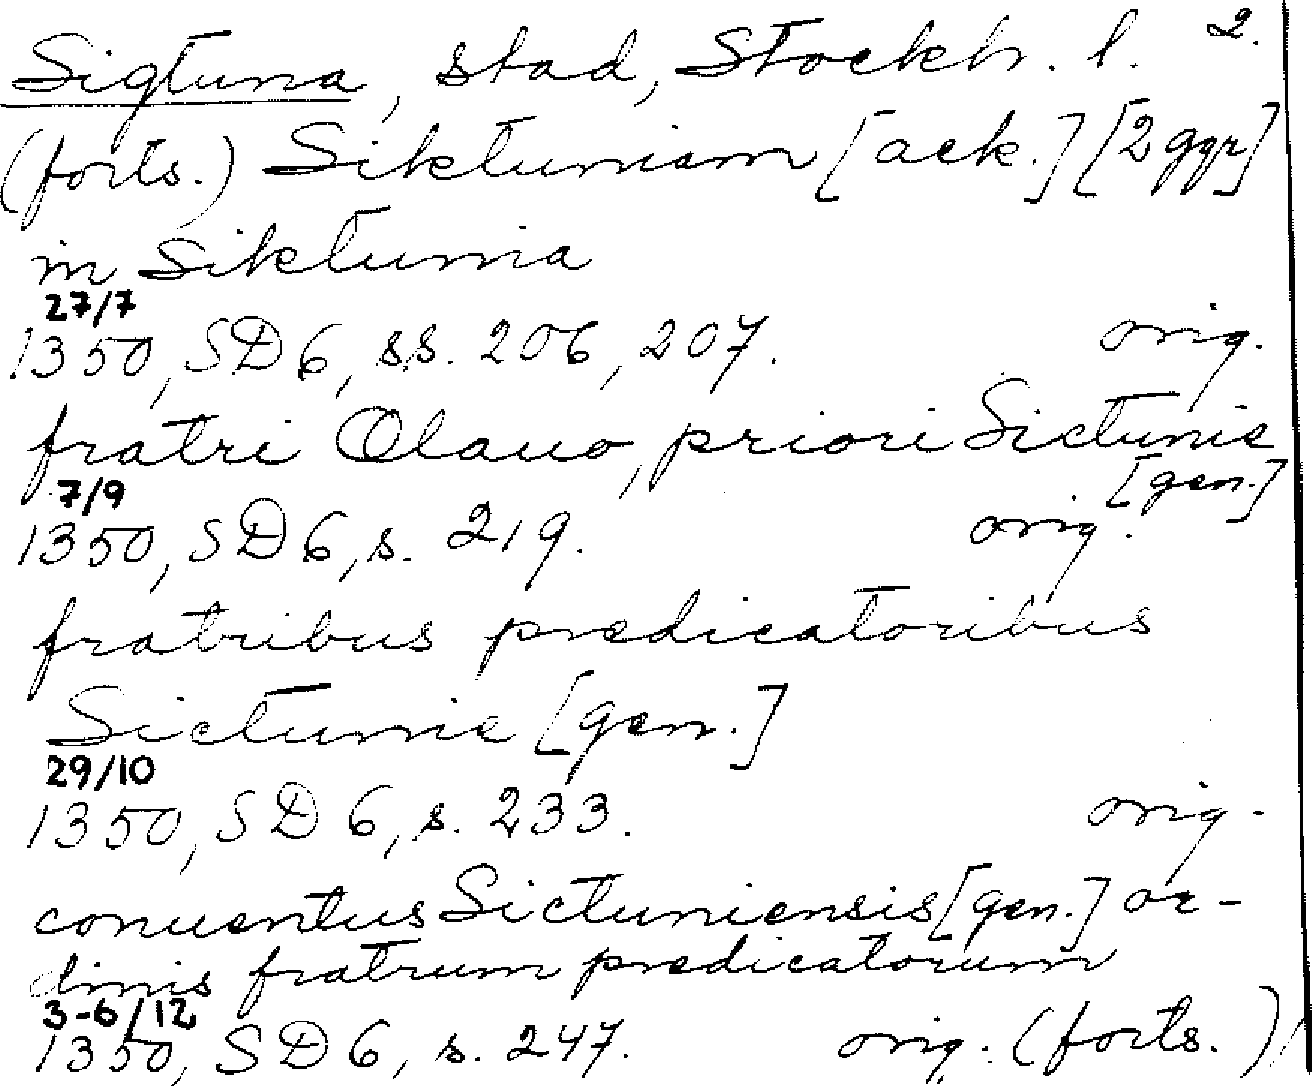 Sigtuna, stad, Stockh. l. 2.
(forts.) Siktuniam [ack.] [2 ggr]
in Siktunia
27/7
1350, SD 6, ss. 206, 207. orig.
fratri Olauo, priori Sictunie
[gen.]
7/9
1350, SD 6, s. 219. orig.
fratribus predicatoribus
Sictunie [gen.]
29/10
1350, SD 6, s. 233. orig.
conuentus Sictuniensis [gen.] or-
dinis fratrum predicatorum
3-6/12
1350, SD 6, s. 247. orig. (forts.)